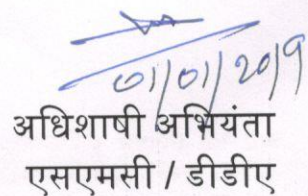 01/01/2019
अधिशाषी अभियंता
एसएमसी / डीडीए